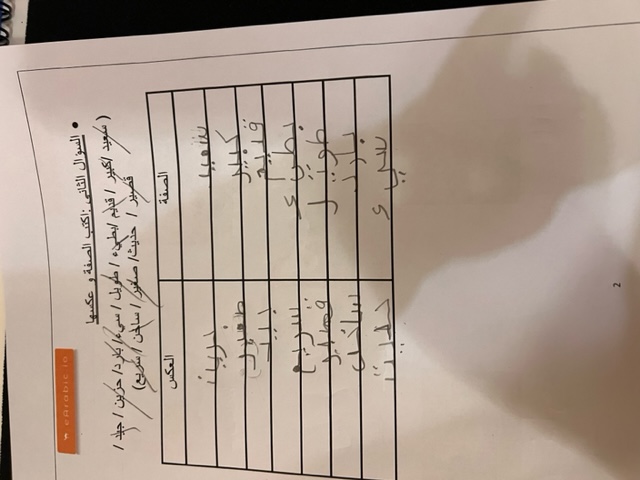 eArabic.io
• السؤال الثاني :اكتب الصفة و عكسها
( سعيد /كبير / قديم /بطيء / طويل / سيء /بارد/ حزين / جيد /
قصير / حديث/ صغير / ساخن / سريع)
الصفة العكس
سعيد حزين
كبير صغير
قديم جيد
بطيء سريع
طويل قصير
بارد ساخن
سيء حديث
2